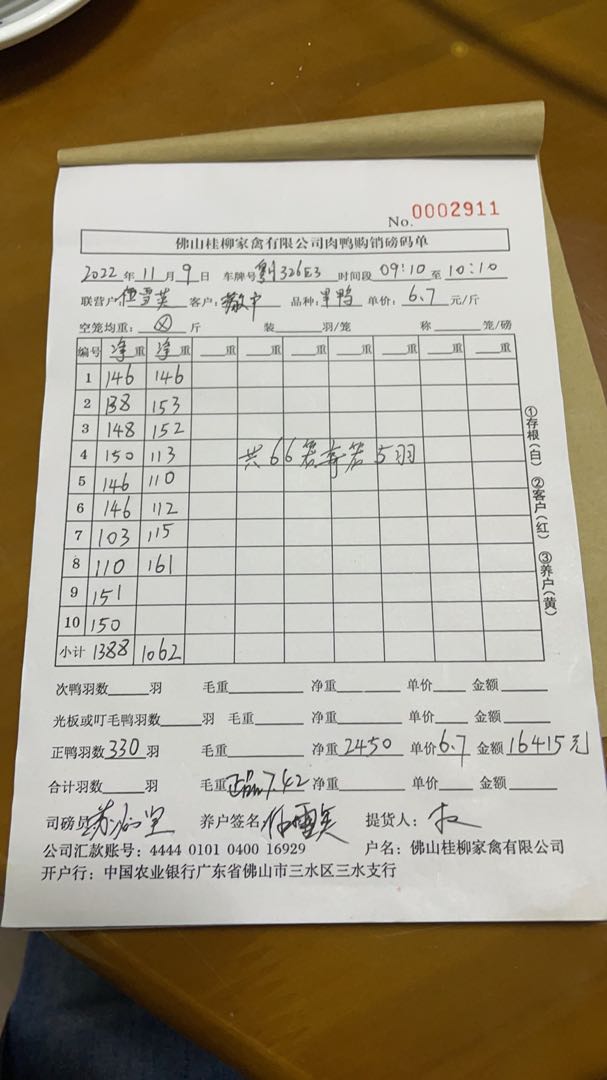 No. 0002911
佛山桂柳家禽有限公司肉鸭购销磅码单
2022年11月9日 车牌号 326E3 时间段 09:10 至 10:10
联营户: 雪英 客户: 品种: 单价: 6.7 元/斤
空笼均重: 斤 装 羽/笼 称 笼/磅
编号 净重 净重 重 重 重 重 重 重 重
1 146 146
2 138 153
3 148 152
4 150 113 共66笼每笼5羽
5 146 110
6 146 112
7 103 115
8 110 161
9 151
10 150
小计 1388 1062
①存根(白) ②客户(红) ③养户(黄)
次鸭羽数 羽 毛重 净重 单价 金额
光板或叮毛鸭羽数 羽 毛重 净重 单价 金额
正鸭羽数 330 羽 毛重 净重 2450 单价 6.7 金额 16415元
合计羽数 羽 毛重 正品7.42 净重 单价 金额
司磅员 养户签名 提货人:
公司汇款账号: 4444 0101 0400 16929 户名: 佛山桂柳家禽有限公司
开户行: 中国农业银行广东省佛山市三水区三水支行